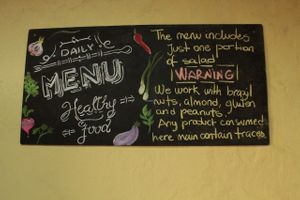 DAILY
MENU
Healthy
Food
The menu includes
Just one portion
of salad
WARNING
We work with brazil
nuts, almond, gluton
and peanuts.
Any product consumed
here main contain traces.